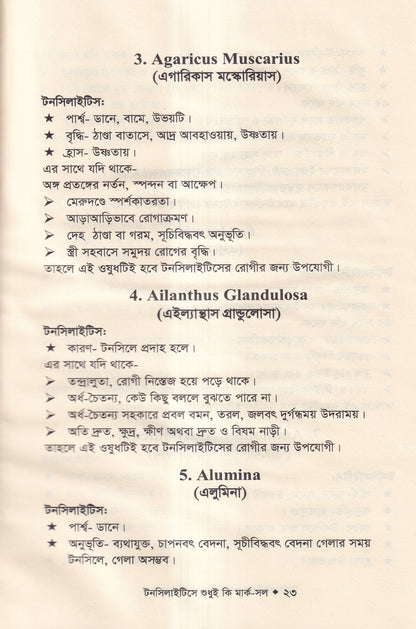 3. Agaricus Muscarius
(এগারিকাস মস্কোরিয়াস)
টনসিলাইটিস:
★ পার্শ্ব- ডানে, বামে, উভয়টি।
★ বৃদ্ধি- ঠাণ্ডা বাতাসে, আদ্র আবহাওয়ায়, উষ্ণতায়।
★ হ্রাস- উষ্ণতায়।
এর সাথে যদি থাকে-
অঙ্গ প্রতঙ্গের নর্তন, স্পন্দন বা আক্ষেপ।
➢ মেরুদণ্ডে স্পর্শকাতরতা।
➢ আড়াআড়িভাবে রোগাক্রমণ।
➢ দেহ ঠাণ্ডা বা গরম, সূচিবিদ্ধবৎ অনুভূতি।
➢ স্ত্রী সহবাসে সমুদয় রোগের বৃদ্ধি।
তাহলে এই ওষুধটিই হবে টনসিলাইটিসের রোগীর জন্য উপযোগী।
4. Ailanthus Glandulosa
(এইল্যান্থাস গ্রান্ডুলোসা)
টনসিলাইটিস:
★ কারণ- টনসিলে প্রদাহ হলে।
এর সাথে যদি থাকে-
➢ তন্দ্রালুতা, রোগী নিস্তেজ হয়ে পড়ে থাকে।
➢ অর্ধ-চৈতন্য, কেউ কিছু বললে বুঝতে পারে না।
➢ অর্ধ-চৈতন্য সহকারে প্রবল বমন, তরল, জলবৎ দুর্গন্ধময় উদরাময়।
➢ অতি দ্রুত, ক্ষুদ্র, ক্ষীণ অথবা দ্রুত ও বিষম নাড়ী।
তাহলে এই ওষুধটিই হবে টনসিলাইটিসের রোগীর জন্য উপযোগী।
5. Alumina
(এলুমিনা)
টনসিলাইটিস:
★ পার্শ্ব- ডানে।
★ অনুভূতি- ব্যথাযুক্ত, চাপনবৎ বেদনা, সূচীবিদ্ধবৎ বেদনা গেলার সময়
টনসিলে, গেলা অসম্ভব।
টনসিলাইটিসে শুধুই কি মার্ক-সল ◆ ২৩